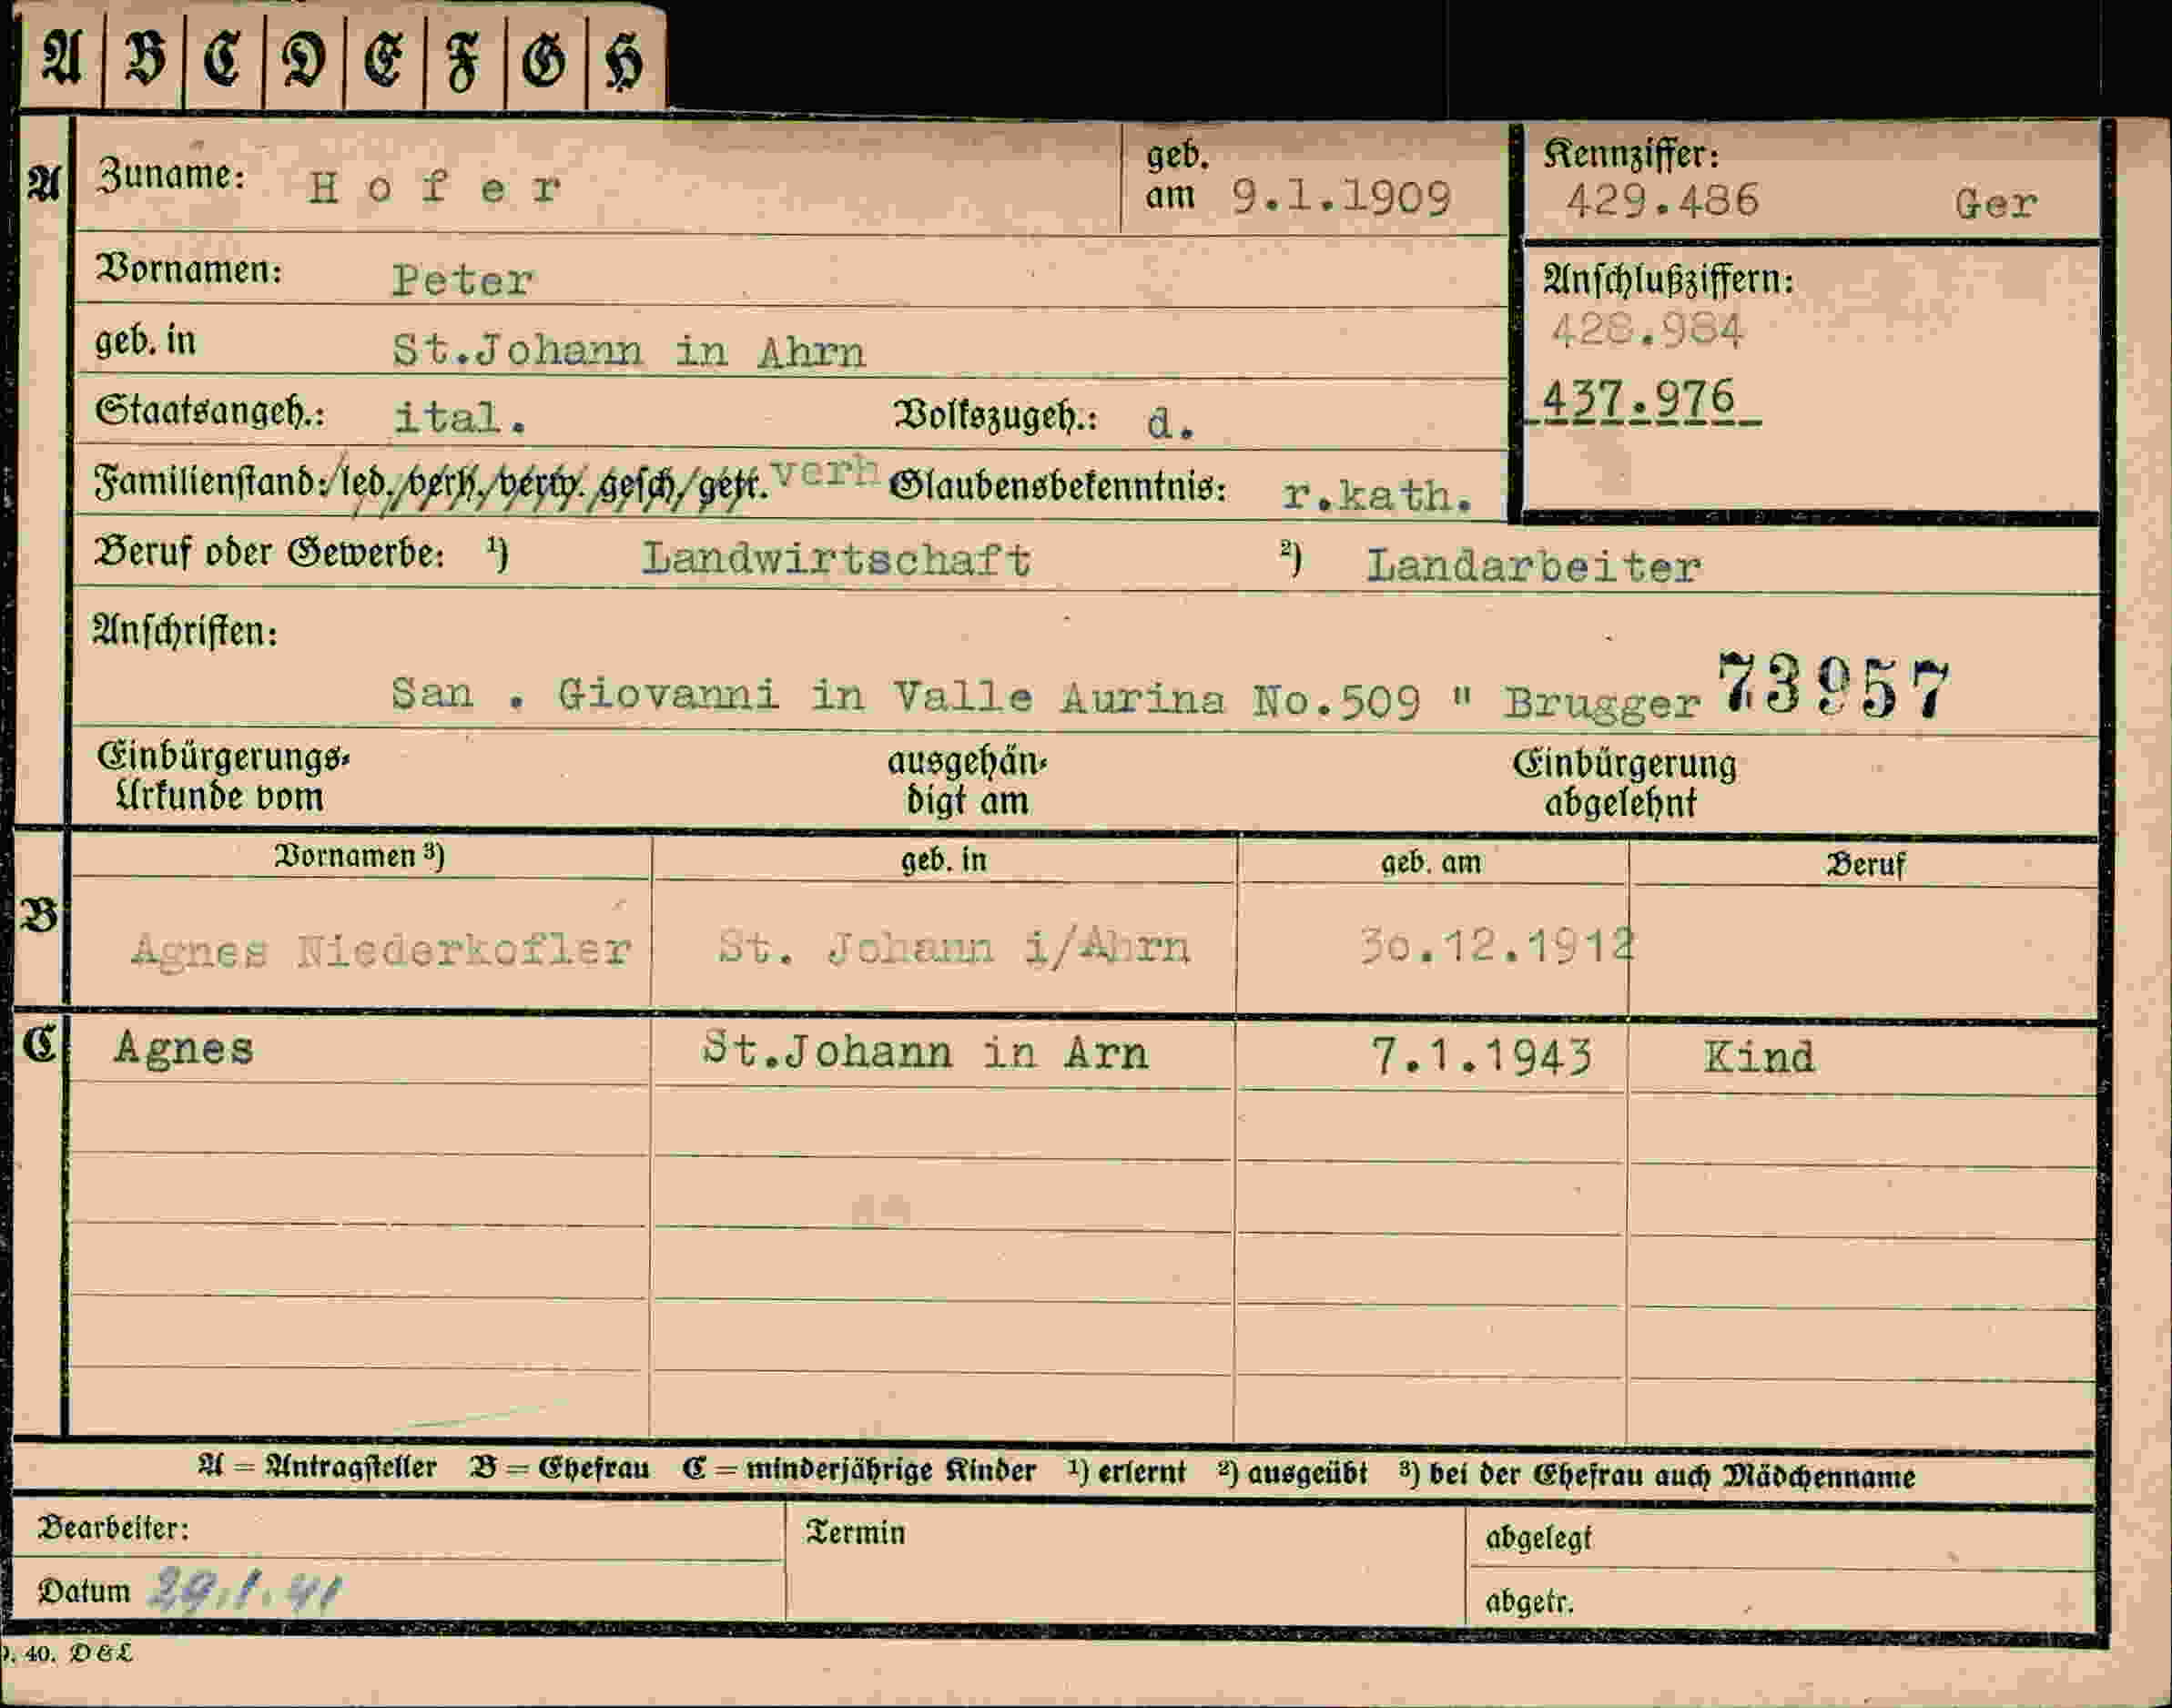 A B C D E F G H
A
Zuname: Hofer
geb.
am 9.1.1909
Kennziffer:
429.486 Ger
Vornamen: Peter
Anschlußziffern:
428.984
geb. in St.Johann in Ahrn
437.976
Staatsangeh.: ital. Volkszugeh.: d.
Familienstand: led. verh. verw. gesch. getr. verh Glaubensbekenntnis: r.kath.
Beruf oder Gewerbe: 1) Landwirtschaft 2) Landarbeiter
Anschriften:
San . Giovanni in Valle Aurina No.509 " Brugger 73957
Einbürgerungs-
Urkunde vom
ausgehän-
digt am
Einbürgerung
abgelehnt
B
Vornamen 3) geb. in geb. am Beruf
Agnes Niederkofler St. Johann i/Ahrn 30.12.1912
C
Agnes St.Johann in Arn 7.1.1943 Kind
A = Antragsteller B = Ehefrau C = minderjährige Kinder 1) erlernt 2) ausgeübt 3) bei der Ehefrau auch Mädchenname
Bearbeiter: Termin abgelegt
Datum 29.1.41 abgetr.
40. D & L